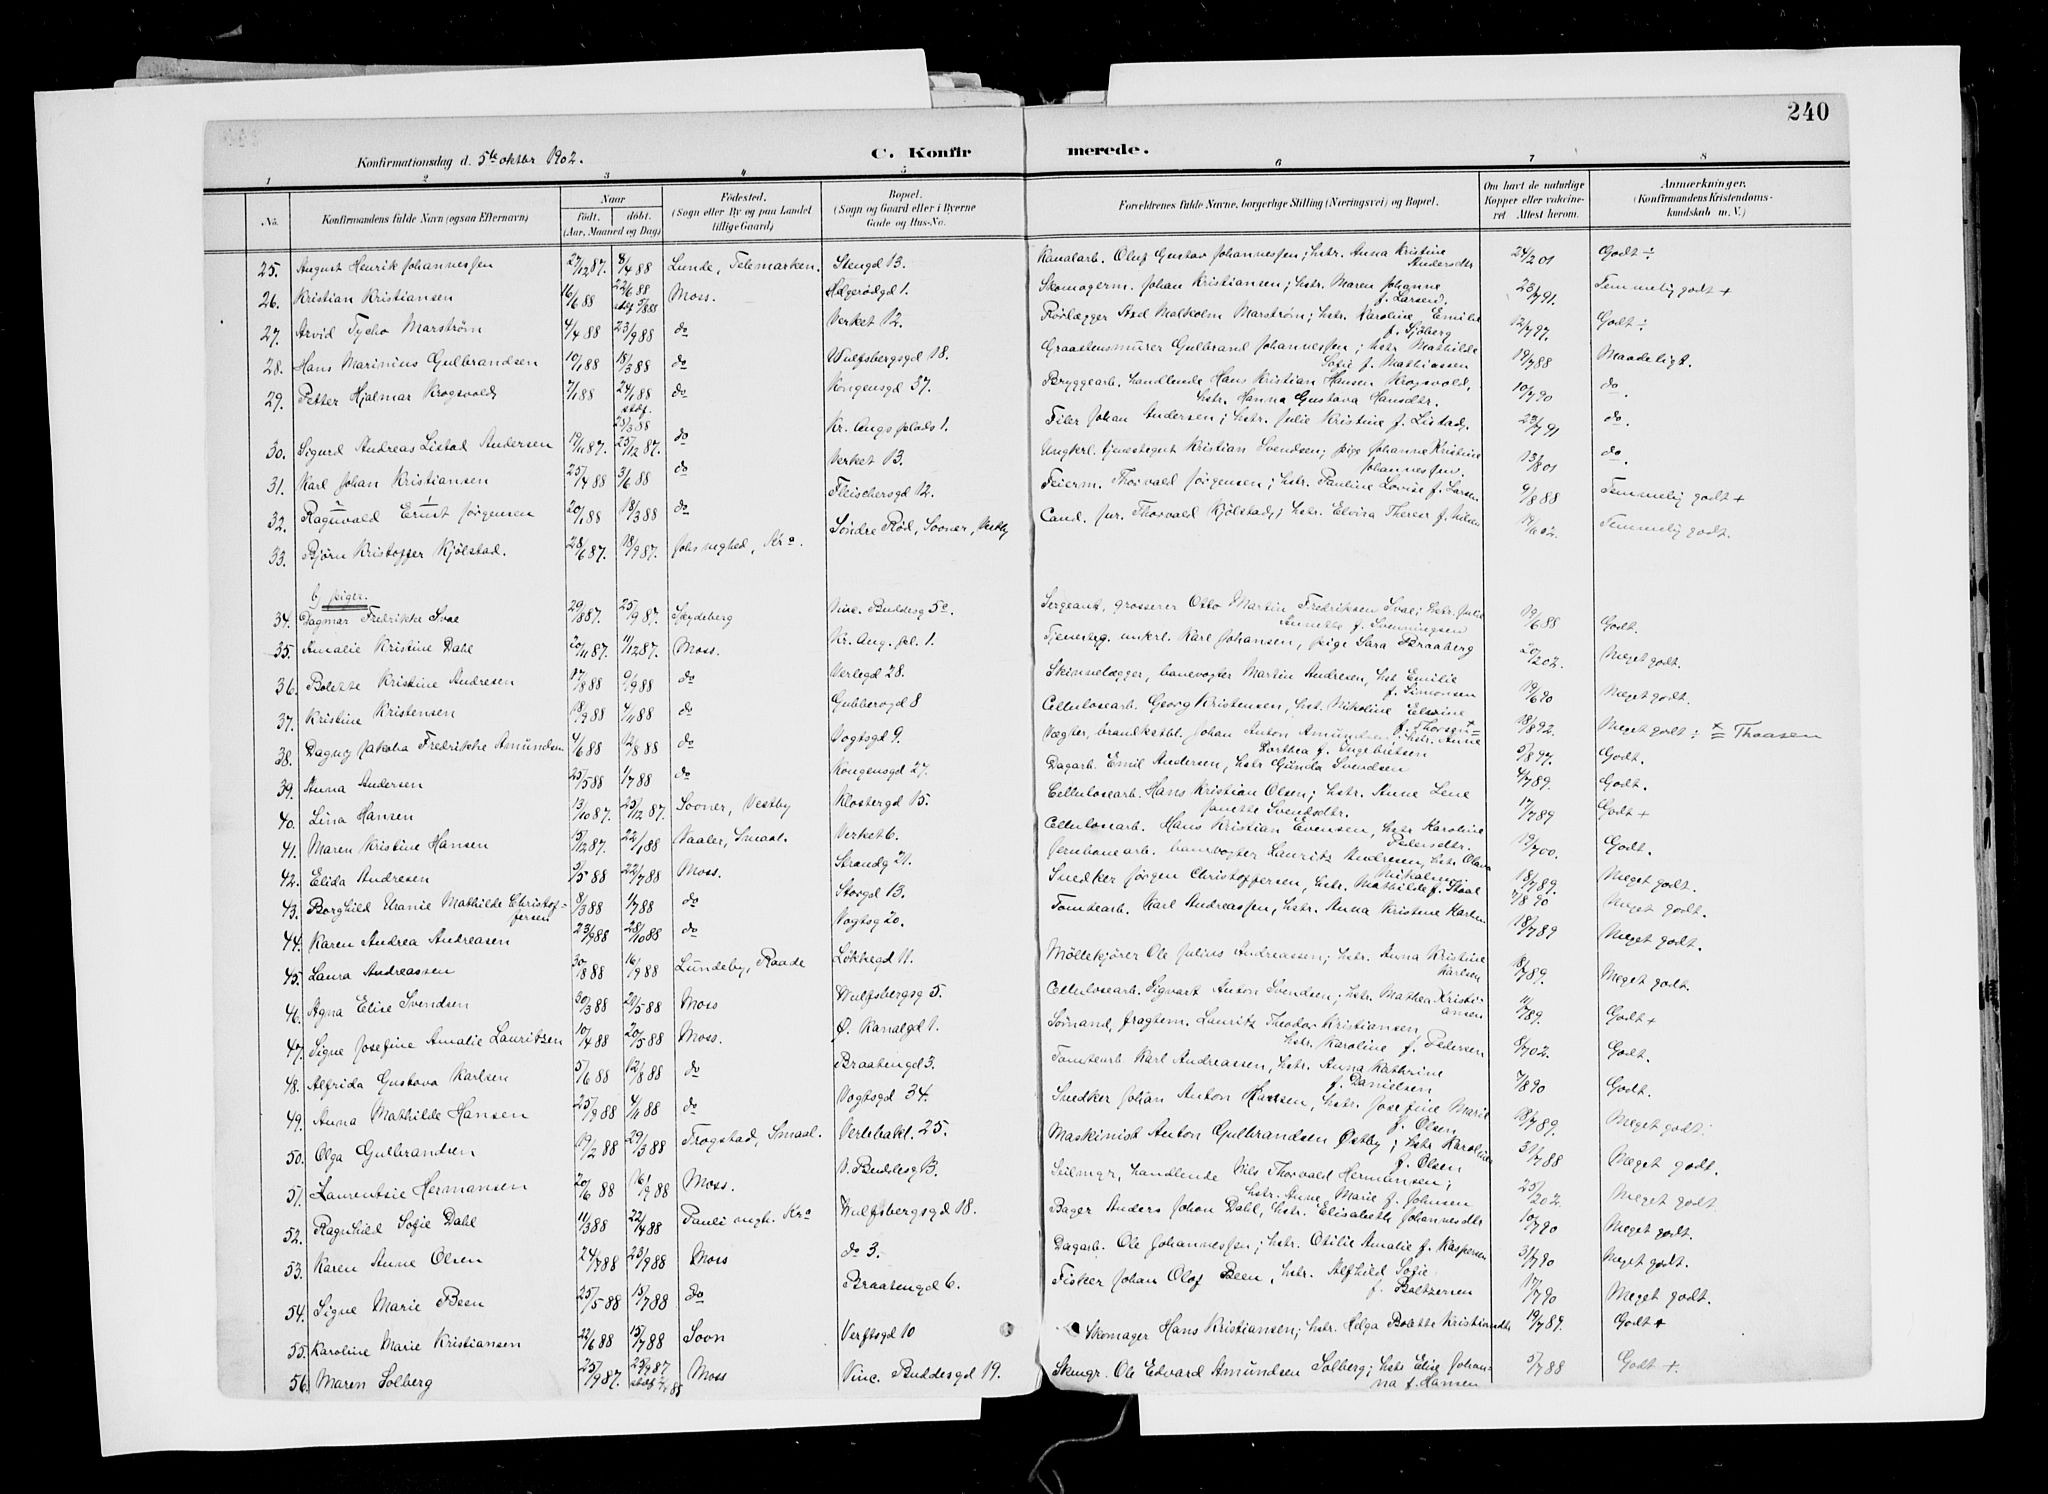 240
Konfirmationsdag d. 5te oktbr 1902.
C. Konfir merede.
1 2 3 4 5 6 7 8
No. Konfirmandens fulde Navn (ogsaa Efternavn) Naar Født. døbt. (Aar, Maaned og Dag) Fødested. (Sogn eller By og paa Landet tillige Gaard) Bopæl. (Sogn og Gaard eller i Byerne Gade og Hus-No. Forældrenes fulde Navne, borgerlige Stilling (Næringsvei) og Bopæl. Om havt de naturlige Kopper eller vakcineret Attest herom. Anmærkninger. (Konfirmandens Kristendomskundskab m. V.)
25. August Henrik Johannessen 27/12 87. 8/4 88 Lunde, Telemarken. Stengd 13. Kanalarb. Oluf Gustav Johannessen; hstr. Anna Kristine Andersdtr 24/2 01 Godt ÷
26. Kristian Kristiansen 16/6 88 22/6 88 Moss. Helgerødgd 1. Skomagerm. Johan Kristiansen; hstr. Maren Johanne f. Larsend. 23/7 91. Temmelig godt +
27. Arvid Tycho Marstrøm 4/4 88 23/9 88 do Verket 12. Rørlægger Axel Malkolm Marstrøm; hstr. Karoline Emilie f. Sjöberg 12/7 97. Godt ÷
28. Hans Marinius Gulbrandsen 10/1 88 18/3 88 do Wulfsbergsgd 18. Graastensmürer Gulbrand Johannessen; hstr Mathilde Sofie f. Mathiassen 19/7 88 Maadeligt.
29. Petter Hjalmar Krogsvold 7/1 88 24/1 88 stadf. 25/3 88 do Kongensgd 37. Bryggearb. handlende Hans Kristian Hansen Krogsvold, hstr. Hanna Gustava Hansdtr. 10/7 90 do.
30. Sigurd Andreas Listad Andersen 19/11 87. 25/12 87. do Kr. Augs plads 1. Filer Johan Andersen; hstr. Julie Kristine f. Listad, 23/7 91 do.
31. Karl Johan Kristiansen 25/4 88 3/6 88 do Verket 13. Ungkrl. tjenestegut Kristian Svendsen; pige Johanne Kristine Johannessen. 13/8 01 do.
32. Ragnvald Ernst Jørgensen 20/1 88 18/3 88 do Fleischersgd 12. Feierm. Thorvald Jørgensen; hstr. Pauline Lovise f. Larsen 9/8 88 Temmelig godt +
33. Bjørn Kristoffer Kjölstad. 28/6 87. 18/9 87. Johs meghed, Kra. Söndre Röd, Sooner, Vestby Cand. jur. Thorvald Kjölstad; hstr. Elvira Theresr f. Nilsen Temmelig godt.
b) piger.
34. Dagmar Fredrikke Svae 29/8 87. 25/9 87. Spydeberg Vinc. Buddesg 5c. Sergeant, grosserer Otto Martin Fredriksen Svae; hstr. Julie Annette f. Svenningsen 19/6 88 Godt.
35. Amalie Kristine Dahl 20/11 87. 11/12 87. Moss. Kr. Aug. pl. 1. Tjenesteg. unkrl. Karl Johansen, pige Sara Braaberg 20/2 02. Meget godt.
36. Bolette Kristine Andresen 17/8 88 9/9 88 do Verlegd 28. Skinnelægger, banevogter Martin Andresen, hst Emilie f. Simonsen 19/6 90 Meget godt.
37. Kristine Kristensen 18/9 88 4/11 88 do Gubberogd 8 Cellulosearb. Georg Kristensen, hst. Nikoline Elvine f. Thorsen + 18/8 92. Meget godt : + = Thoasen
38. Dagny Jakoba Fredrikke Amundsen 4/6 88 12/8 88 do Vogtsgd 9. Vægter, brandkstbl. Johan Anton Amundsen; hstr. Anne Dorthea f. Ingebretsen 5/8 97. Godt.
39. Anna Andersen 25/5 88 1/7 88 do Kongensgd 27. Dagarb. Emil Andersen, hstr Gunda Svendsen 4/7 89. Godt.
40. Lina Hansen 13/10 87. 25/12 87. Sooner, Vestby Klostergd 15. Cellulosearb. Hans Kristian Olsen; hstr. Anne Lene Janette Svendsdtr. 17/7 89 Godt +
41. Maren Kristine Hansen 15/12 87. 22/1 88 Vaaler, Smaal. Verket 6. Cellulosearb. Hans Kristian Evensen, hstr Karoline Pedersdtr. 19/7 00. Godt.
42. Elida Andresen 5/5 88 22/7 88 Moss. Strandg 21. Jernbanearb. banevogter Lauritz Andresen, hstr. Olava Mikalsen 18/7 89. Meget godt.
43. Borghild Uranie Mathilde Christoffersen 8/3 88 1/7 88 do Storgd 13. Snedker Jørgen Christoffersen, hstr. Mathilde f. Staal 7/8 90 Meget godt.
44. Karen Andrea Andreasen 23/9 88 28/10 88 do Vogtsg 20. Tomtearb. Karl Andreassen, hstr. Anna Kristine Karlsen 18/7 89 Meget godt.
45. Laura Andreassen 30/8 88 16/9 88 Lundeby, Raade Løkkegd 11. Møllekjører Ole Julius Andreassen; hstr. Anna Kristine Karlsen 18/7 89. Meget godt.
46. Agna Elise Svendsen 30/3 88 21/5 88 Moss Wulfsbergsg 5. Cellulosearb. Sigvart Anton Svendsen; hstr. Mathea Kristiansen 11/7 89. Godt +
47. Signe Josefine Amalie Lauritzen 10/4 88 20/5 88 Moss. Ø. Kanalgd 1. Sømand, fragtem. Lauritz Theodor Kristiansen, hstr. Karoline f. Pedersen 8/7 02. Godt.
48. Alfrida Gustava Karlsen 5/6 88 12/8 88 do Braatengd 3. Tomtearb. Karl Andreassen, hstr. Anna Kathrine f. Danielsen 7/8 90 Godt.
49. Anna Mathilde Hansen 25/9 88 4/11 88 do Vogtsgd 34. Snedker Johan Anton Hansen, hstr. Josefine Marie f. Olsen 18/7 89. Meget godt.
50. Olga Gulbrandsen 19/2 88 29/3 88 Trøgstad, Smaal. Verlebakl. 25. Maskinist Anton Gulbrandsen Østby; hstr Karoline f. Olsen 31/7 88 Meget godt.
51. Laurentsie Hermansen 20/6 88 16/9 88 Moss. V. Buddesg 13. Seilmgr, handlende Nils Thorvald Hermansen; hstr. Anne Marie f. Johnsen 25/2 02. Meget godt
52. Ragnhild Sofie Dahl 11/3 88 22/4 88 Pauli mgh. Kra Wulfsbergsgd 18. Bager Anders Johan Dahl, hstr. Elisabeth Johannesdtr 10/7 90 Meget godt.
53. Karen Anne Olsen 24/7 88 23/9 88 Moss do 3. Dagarb. Ole Johannessen; hstr. Otilie Amalie f. Kaspersen 31/7 90 Meget godt.
54. Signe Marie Been 25/5 88 15/7 88 do Braatengd 6. Fisker Johan Olaf Been, hstr. Alfhild Sofie f. Baltzersen 17/7 90 Meget godt.
55. Karoline Marie Kristiansen 22/6 88 15/7 88 Soon Verftsgd 10 Skomager Hans Kristiansen; hstr. Helga Bolette Kristiansdtr 19/7 89. Godt +
56. Maren Solberg 25/9 87. 25/9 87. Moss Vinc. Buddesgd 19. Skmgr. Ole Edvard Amundsen Solberg; hstr Elise Johanna f. Hansen 5/7 88 Godt +.